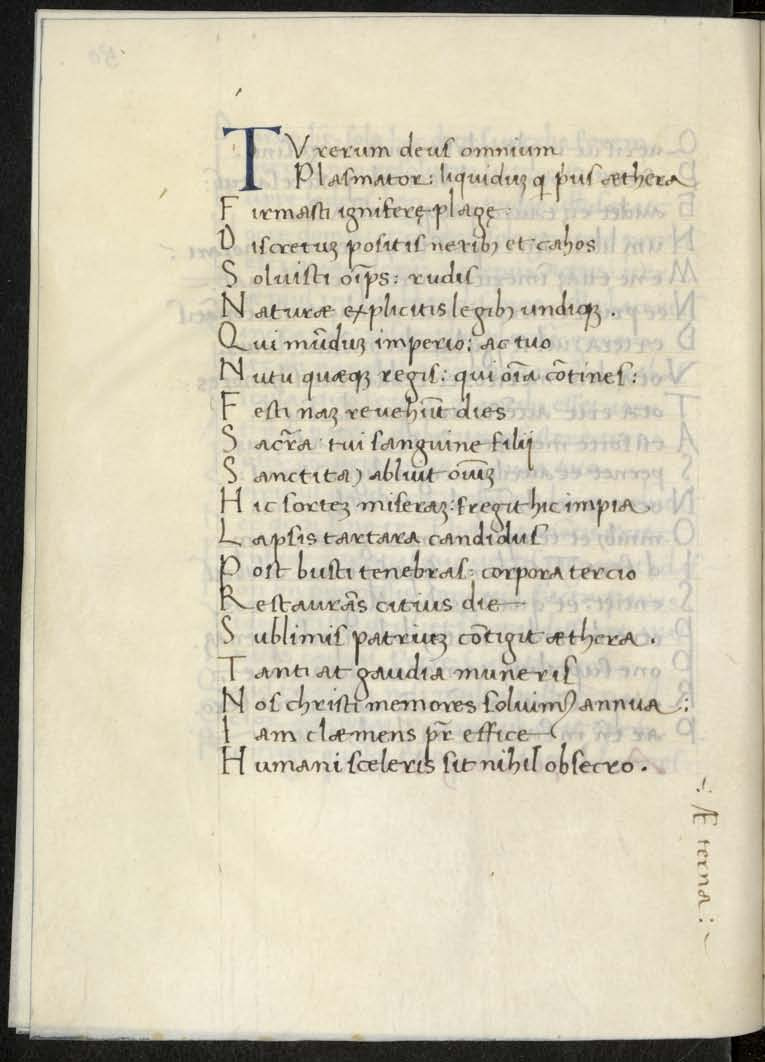 TV rerum deus omnium
Plasmator: liquiduꝫ q̇ p̓us æthera
Firmasti igniferę plagę
Discretuꝫ positis neribꝫ et cahos
Soluisti oīps: rudis
Naturæ explicitis legibꝫ undiqꝫ.
Qui mūduꝫ imperio: ac tuo
Nutu quæqꝫ regis: qui oīa cōtines:
Festi naꝫ revehūt dies
Sacr̄a tui sanguine filij
Sanctitaꝯ abluit oīuꝫ
Hic sorteꝫ miseraꝫ: fregit hic impia.
Lapsis tartara candidus
Post busti tenebras: corpora tercio
Restaurās citius die
Sublimis patriuꝫ cōtigit æthera.
Tanti at gaudia muneris
Nos christi memores soluimꝯ annua:
Iam clæmens pr̄ effice
Humani sceleris sit nihil obsecro.
Æterna: